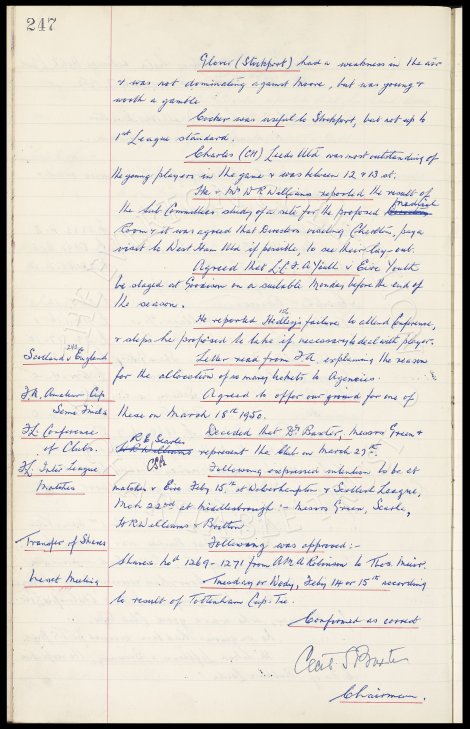 247
Glover (Stockport) had a weakness in the air
& was not dominating against Moore, but was young &
worth a gamble
Cocker was useful to Stockport, but not up to
1st League standard.
Charles (CH) Leeds Utd was most outstanding of
the young players in the game & was between 12 & 13 st.
He & Mr W R Williams reported the result of
the Sub Committees study of a site for the proposed Medical
Room & it was agreed that Directors visiting Charlton, pay a
visit to West Ham Utd if possible, to see their lay-out.
Agreed that L.C.F.A Youth v Eire Youth
be staged at Goodison on a suitable Monday before the end of
the season.
He reported Hedley's failure to attend Conference,
& steps he proposed to take if necessary to deal with player.
Scotland v England
Letter read from F.A. explaining the reason
for the allocation of so many tickets to Agencies.
F.A. Amateur Cup
Semi Finals
Agreed to offer our ground for one of
these on March 18th 1950.
F.L. Conference
of Clubs.
Decided that Dr Baxter, Messrs Green &
R E Searle
W.R. Williams represent the Club on March 27th.
CSB
F.L. Inter League
Matches
Following expressed intention to be at
matches v Eire Feby 15th at Wolverhampton, & Scottish League,
Mch 22nd at Middlesbrough :- Messrs Green, Searle,
W R Williams & Britton.
Transfer of Shares
Following was approved :-
Shares Nos 1269 - 1271 from A M A Robinson to Thos.
Next Meeting
Tuesday or Wedy, Feby 14 or 15th according
to result of Tottenham Cup-Tie.
Confirmed as correct
Cecil S Baxter
Chairman.